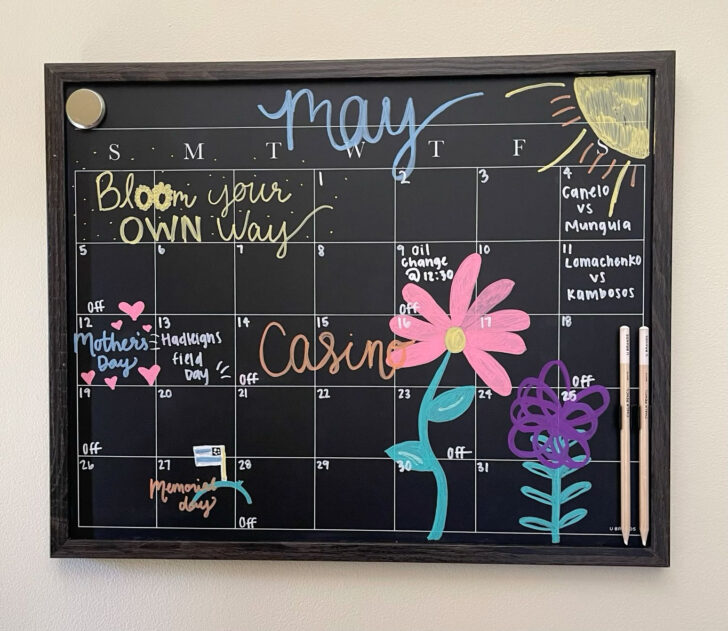 may
S M T W T F S
Bloom your
OWN Way
1
2
3
4
Canelo
vs
Mungula
5
Off
6
7
8
9 Oil
Change
@ 12:30
Off
10
11
Lomachonko
vs
Kambosos
12
Mother's
Day
13
Hadleigns
field
Day
14
Off
15
Casino
16
17
18
Off
19
Off
20
21
22
23
Off
24
25
26
27
Memorial
day
28
Off
29
30
31
U BRANDS